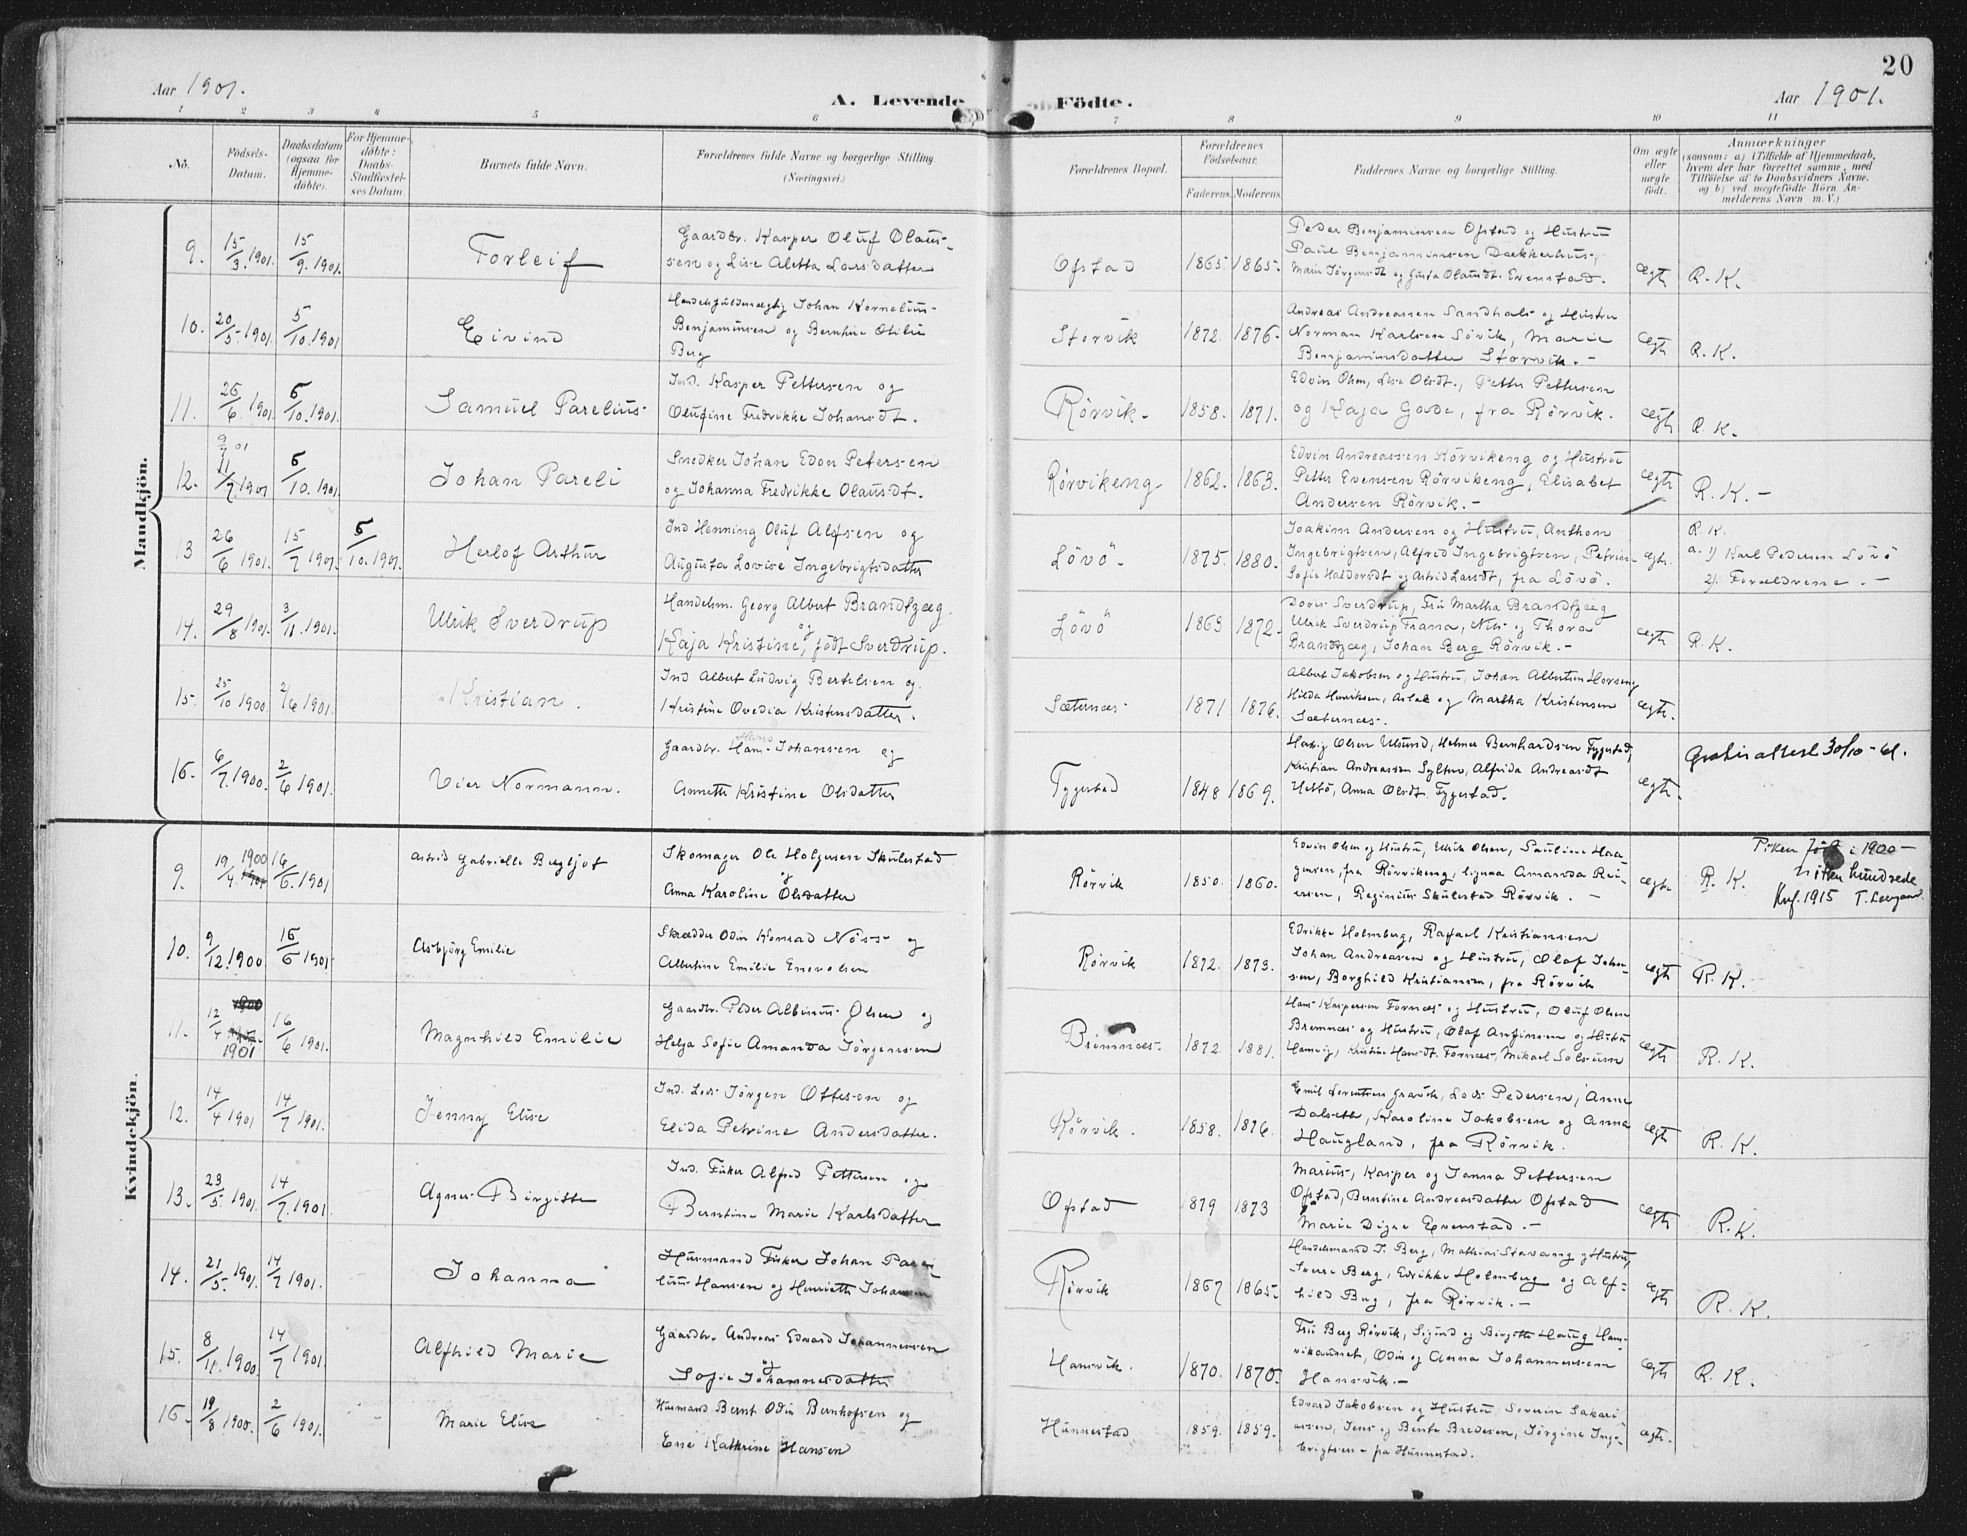 20
Aar 1901.
A. Levende Födte.
Aar 1901.
1 2 3 4 5 6 7 8 9 10 11
No.
Födsels-Datum.
Daabsdatum (ogsaa for Hjemme-döbte).
For Hjemme-döbte: Daabs-Stadfæstel-ses Datum
Barnets fulde Navn.
Forældrenes fulde Navne og borgerlige Stilling. (Næringsvei.)
Forældrenes Bopæl.
Forældrenes Födselsaar.
Faderens. Moderens.
Faddernes Navne og borgerlige Stilling.
Om ægte eller uægte födt.
Anmærkninger
(saasom: a) i Tilfælde af Hjemmedaab, hvem der har forrettet samme, med Tilföielse af to Daabsvidners Navne, og b) ved uægtefödte Börn An-melderens Navn m. V.)
Mandkjön.
9. 15/3 1901. 15/9 1901. Torleif
Gaardbr. Kasper Oluf Olaus-
sen og Lise Aletta Larsdatter
Ofstad 1865 1865.
Peder Benjaminsen Ofstad og Hustru
Paul Benjaminsen
Evenstad.
ægte R. K.
10. 20/5 1901 5/10 1901 Eivind
Johan Kornelius
Benjaminsen og Bernhine Otilie
Berg
Storvik 1872. 1876.
Andreas Andreassen Sandhals og Hustru
Norman Karlsen Sövik, Marie
Benjaminsdatter Storvik. -
ægte R. K.
11. 26/6 1901 5/10 1901. Samuel Parelius
Ind. Kasper Pettersen og
Olufine Fredrikke Johansdt.
Rörvik. 1858. 1871.
Edvin Olsen, Lise Olsdt., Petter Pettersen
og Kaja Gade, fra Rörvik.
ægte R. K.
12. 11/7 1901 5/10 1901. Johan Pareli
Snedker Johan Edon Petersen
og Johanna Fredrikke Olausdt.
Rörvikeng 1862. 1863.
Edvin Andreassen Rörvikeng og Hustru
Petter Evensen Rörvikeng, Elisabet
Andersen Rörvik. -
ægte R. K. -
13 26/6 1901. 15/7 1901. 5/10 1901. Herlof Arthur
Ind Henning Oluf Alofsen og
Augusta Lovise Ingebrigtsdatter
Lövö 1875. 1880.
Joakim Andersen og Hustru, Anthon
Ingebrigtsen, Alfred Ingebrigtsen, Petrine
Sofie Haldorsdt og Astrid Larsdt, fra Lövö.
ægte.
R. K.
a. 1) Karl Pedersen Lövö
2). Forældrene. -
14. 29/8 1901. 3/11 1901. Ulrik Sverdrup
Handelsm. Georg Albert Brandtzæg
og
Kaja Kristine, födt Sverdrup.
Lövö 1863 1872.
Sverdrup, Fru Martha Brandtzæg
Ulrik Sverdrup Frana, Nils og Thora
Brandtzæg, Johan Berg Rörvik. -
ægte R. K.
15. 25/10 1900 2/6 1901. Kristian.
Ind Albert Ludvig Bertelsen og
Kristine Ovedia Kristensdatter.
Sæternæs 1871 1876.
Albert Jakobsen og Hustru, Johan Albertsen
Hilda Henriksen, Aslak og Martha Kristensen
Sæternæs.
ægte.
16. 6/7 1900. 2/6 1901. Vier Normann.
Hans
Gaardbr. Hans Johansen og
Annette Kristine Olsdatter
Fyggestad 1848 1869.
Olsen Ulsund, Helmer Bernhardsen Fyggestad,
Kristian Andreassen Sylten, Alfrida Andreasdt
Anna Olsdt Fyggestad.
ægte. Gratisattest 30/10-61.
Kvindekjön.
9. 19/4 1900 1901 16/6 1901 Astrid Gabrielle Bergljot
Skomager Ole Holgersen Skulestad
og
Anna Karoline Olsdatter
Rörvik 1850. 1860.
Edvin Olsen og Hustru, Ulrik Olsen, Pauline
fra Rörvikeng, Amanda
Reginius Skulestad Rörvik. -
ægte R. K.
Piken född i 1900 -
nitten hundrede
Knf. 1915
10. 9/12 1900 16/6 1901 Asbjörg Emilie
Skrædder Odin Konrad Nöss og
Albertine Emilie Enevolsen
Rörvik 1872. 1873.
Edrikke Holmberg, Rafael Kristiansen
Johan Andreasen og Hustru, Olaf Johan-
sen, Borghild Kristiansen, fra Rörvik
ægte R. K.
11. 12/4 1901 16/6 1901. Magnhild Emilie
Gaardbr. Peder Albinus Olsen og
Helga Sofie Amanda Jörgensen
Bremnæs. 1872 1881.
Hans Kaspersen Fornæs og Hustru, Oluf Olsen
Bremnæs og Hustru, Olaf Anfinsen og Hustru
Kristine Hansdt. Fornæs, Mikael Solsum
ægte R. K.
12. 14/4 1901 14/7 1901. Jenny Elise
Ind. Lods Jörgen Otteson og
Elida Petrine Andersdatter.
Rörvik. 1858. 1876.
Emil Lorentsen Lods Pedersen, Anne
Dalseth, Karoline Jakobsen og Anna
Haugland, fra Rörvik.
ægte R. K.
13. 23/5 1901. 14/7 1901. Agnes Birgitte
Ind. Fisker Alfred Pettersen og
Berntine Marie Karlsdatter
Ofstad 1879 1873
Marius, Kasper og Janna Pettersen
Ofstad, Berntine Andreasdatter Ofstad
Marie Digre Evenstad. -
ægte R. K.
14. 21/5 1901. 14/7 1901. Johanna
Husmand Fisker Johan Pare-
lius Hansen og Henriette Johansen
Rörvik 1867 1865.
Handelsmand J. Berg, Mathias Stavang og Hustru,
Sverre Berg, Edrikke Holmberg og Alf-
hild Berg, fra Rörvik. -
ægte R. K.
15. 8/11 1900 14/7 1901. Alfhild Marie
Gaardbr. Andreas Edvard Johannessen
og
Sofie Johannesdatter
Hansvik. 1870. 1870.
Fru Berg Rörvik, Sigurd og Birgitte Haug Hans-
vikaunet, Odin og Anna Johannessen
Hansvik. -
ægte R. K.
16. 19/8 1900. 2/6 1901. Marie Elise
Husmand Bernt Odin Bernhofsen og
Else Kathrine Hansen
Hunnestad 1859. 1859.
Edvard Jakobsen og Hustru, Severin Sakari-
assen, Jens og Bente Bredesen, Jörgine Inge-
brigtsen - fra Hunnestad.
ægte.